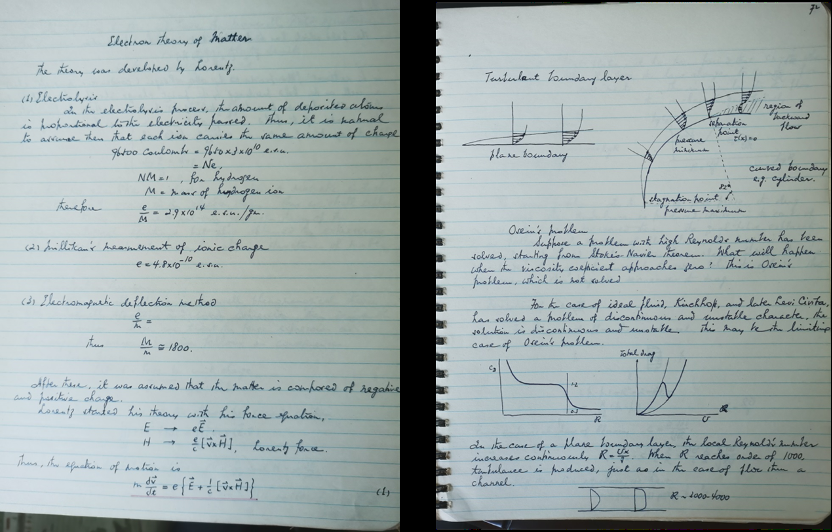 Electron theory of Matter
The theory was developed by Lorentz.
(1) Electrolysis
In the electrolysis process, the amount of deposited atoms
is proportional to the electricity passed. Thus, it is natural
to assume then that each ion carries the same amount of charge
96500 Coulombs = 9650 x 3 x 10^10 e.s.u.
= Ne,
NM = 1, for hydrogen
M = mass of hydrogen ion
therefore e/M = 2.9 x 10^14 e.s.u./gr.
(2) Millikan's measurement of ionic charge
e = 4.8 x 10^-10 e.s.u.
(3) Electromagnetic deflection method
e/m =
thus M/m ≅ 1800.
After these, it was assumed that the matter is composed of negative
and positive charge.
Lorentz started his theory with his force equation,
E → eE
H → e/c [v x H], Lorentz force.
Thus, the equation of motion is
m dv/dt = e { E + 1/c [v x H] }
(1)
72
Turbulent boundary layer
plane boundary
region of
backward
flow
separation
point
pressure
minimum
curved boundary
e.g. cylinder.
stagnation point
pressure maximum
Oseen's problem
Suppose a problem with high Reynold's number has been
solved, starting from Stokes Navier theorem. What will happen
when the viscosity coefficient approaches zero? This is Oseen's
problem, which is not solved
For the case of ideal fluid, Kirchhoff, and late Levi Civita,
has solved a problem of discontinuous and unstable character. The
solution is discontinuous and unstable. This may be the limiting
case of Oseen's problem.
Total drag
R
U
In the case of a plane boundary layer, the local Reynold's number
increases continuously. When R reaches order of 1000,
turbulance is produced, just as in the case of flow thru a
channel.
R ~ 1000-4000